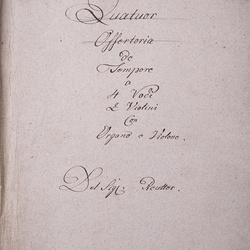 Quatuor
Offertoria
de
Tempore
a
4 Voci
2 Violini
Con
Organo e Violone.
Del Sig: Reutter.